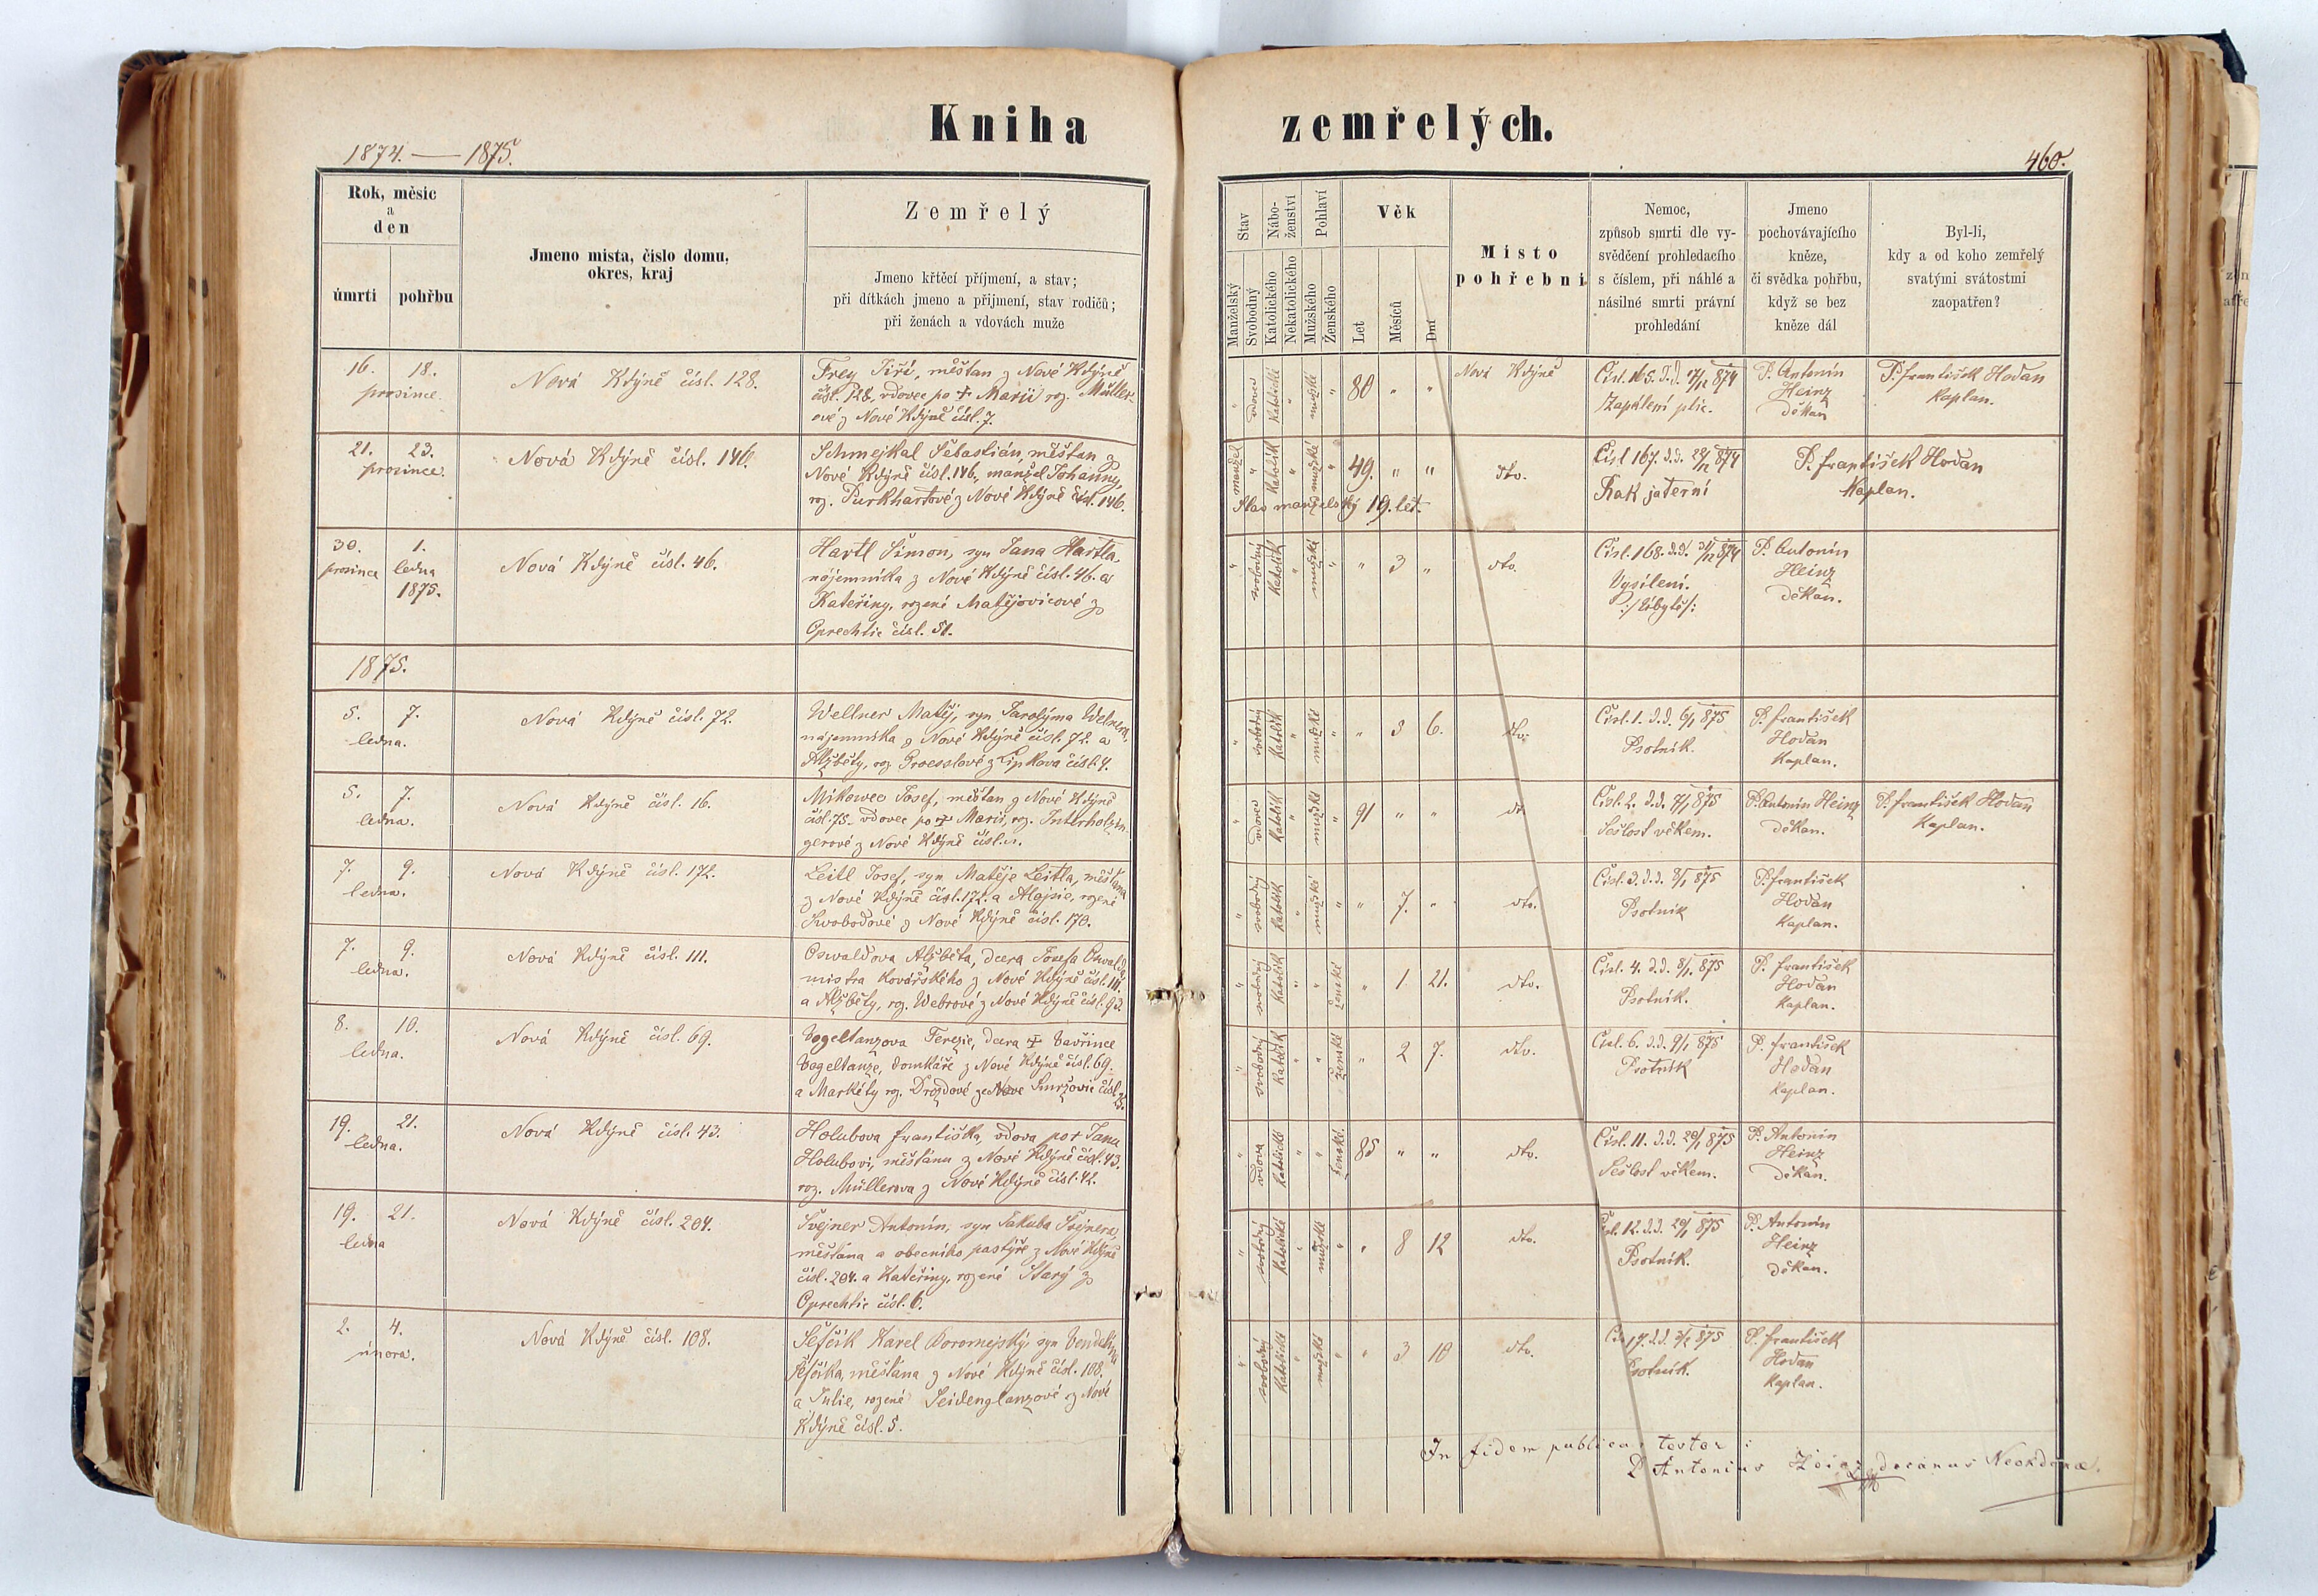 Kniha zemřelých.
1874. — 1875.
460.
Rok, měsíc
a
den
úmrtí
pohřbu
Jmeno místa, číslo domu,
okres, kraj
Zemřelý
Jmeno křtěcí příjmení, a stav;
při dítkách jmeno a příjmení, stav rodičů;
při ženách a vdovách muže
Stav
Manželský
Svobodný
Nábo-
ženství
Katolického
Nekatolického
Pohlaví
Mužského
Ženského
Věk
Let
Měsíců
Dní
Místo
pohřební
Nemoc,
způsob smrti dle vy-
svědčení prohledacího
s číslem, při náhlé a
násilné smrti právní
prohledání
Jmeno
pochovávajícího
kněze,
či svědka pohřbu,
když se bez
kněze dál
Byl-li,
kdy a od koho zemřelý
svatými svátostmi
zaopatřen?
16. 18.
prosince.
Nová Kdýně čísl. 128.
Frey Jiří, měšťan z Nové Kdýně
čísl. 128, vdovec po + Marii roz. Müller-
ové z Nové Kdýně čísl. 7.
" vdovec katolické " mužské " 80 " "
Nová Kdýně
Čísl. 165. d.d. 17/12 874
Zapálení plic.
P. Antonín
Heinz
děkan
P. František Hodan
Kaplan.
21. 23.
prosince.
Nová Kdýně čísl. 146.
Schmejkal Šebastián, měšťan z
Nové Kdýně čísl. 146, manžel Johanny,
roz. Purkhartové z Nové Kdýně čísl. 146.
manžel " katolík " mužské " 49. " "
Stav manželský 19. let.
dto.
Čísl 167. d.d. 22/12 874
Rak jaterní
P. František Hodan
Kaplan.
30. 1.
prosince ledna
1875.
Nová Kdýně čísl. 46.
Hartl Šimon, syn Jana Hartla,
nájemníka z Nové Kdýně čísl. 46. a
Kateřiny, rozené Matějovicové z
Oprechtic čísl. 51.
" svobodný katolík " mužské " " 3 "
dto.
Čísl. 168. d.d. 31/12 874
Vysílení.
P. Antonín
Heinz
děkan.
1875.
5. 7.
ledna.
Nová Kdýně čísl. 72.
Wellner Matěj, syn Jarolýma Welnera,
nájemníka z Nové Kdýně čísl. 72. a
Alžběty, roz. Groesslové z Lipkova čísl. 4.
" svobodný katolík " mužské " " 3 6.
dto.
Čísl. 1. d.d. 6/1 875
Psotník.
P. František
Hodan
Kaplan.
5. 7.
ledna.
Nová Kdýně čísl. 16.
Mikowec Josef, měšťan z Nové Kdýně
čísl. 75. vdovec po + Marii, roz. Interholzin-
gerové z Nové Kdýně čísl.
" vdovec katolík " mužské " 91 " "
dt
Čísl. 2. d.d. 7/1 875
Sešlost věkem.
P. Antonín Heinz
děkan.
P. František Hodan
Kaplan.
7. 9.
ledna.
Nová Kdýně čísl. 172.
Leitl Josef, syn Matěje Leitla, měšťana
z Nové Kdýně čísl. 172. a Alojsie, rozené
Svobodové z Nové Kdýně čísl. 170.
" svobodný katolík " mužské " " 7. "
dto.
Čísl. 3. d.d. 8/1 875
Psotník
P. František
Hodan
Kaplan.
7. 9.
ledna.
Nová Kdýně čísl. 111.
Oswaldova Alžběta, dcera Josefa Oswalda
mistra kovářského z Nové Kdýně čísl. 111.
a Alžběty, roz. Webrové z Nové Kdýně čísl. 93.
" svobodný katolík " " ženské " 1 21.
dto.
Čísl. 4. d.d. 8/1 875
Psotník.
P. František
Hodan
Kaplan.
8. 10.
ledna.
Nová Kdýně čísl. 69.
Vogeltanzova Terezie, dcera + Vavřince
Vogeltanze, domkáře z Nové Kdýně čísl. 69.
a Markéty roz. Drozdové ze Nové Smržovic čísl.
" svobodný katolík " " ženské " 2 7.
dto.
Čísl. 6. d.d. 9/1 875
Psotník
P. František
Hodan
Kaplan.
19. 21.
ledna.
Nová Kdýně čísl. 43.
Holubova Františka, vdova po + Janu
Holubovi, měšťánu z Nové Kdýně čísl. 43.
roz. Müllerova z Nové Kdýně čísl. 42.
" vdova katolické " " ženské. 85 " "
dto.
Čísl. 11. d.d. 20/1 875
Sešlost věkem.
P. Antonín
Heinz
děkan.
19. 21.
ledna
Nová Kdýně čísl. 204.
Švejner Antonín, syn Jakuba Švejnera,
měšťana a obecního pastýře z Nové Kdýně
čísl. 204. a Kateřiny, rozené Starý z
Oprechtic čísl. 6.
" svobodný katolické " mužské " " 8 12
dto.
Čísl. 12. d.d. 20/1 875
Psotník.
P. Antonín
Heinz
děkan.
2. 4.
února.
Nová Kdýně čísl. 108.
Šefčík Karel Boromejský, syn Vendelína
Šefčíka, měšťana z Nové Kdýně čísl. 108.
a Julie, rozené Seidenglanzové z Nové
Kdýně čísl. 5.
" svobodný katolické " mužské " " 3 10
dto.
17. d.d. 3/2 875
Psotník.
P. František
Hodan
Kaplan.
In fidem publicam testor:
P Antonius Heinz decanus Neokdynae.